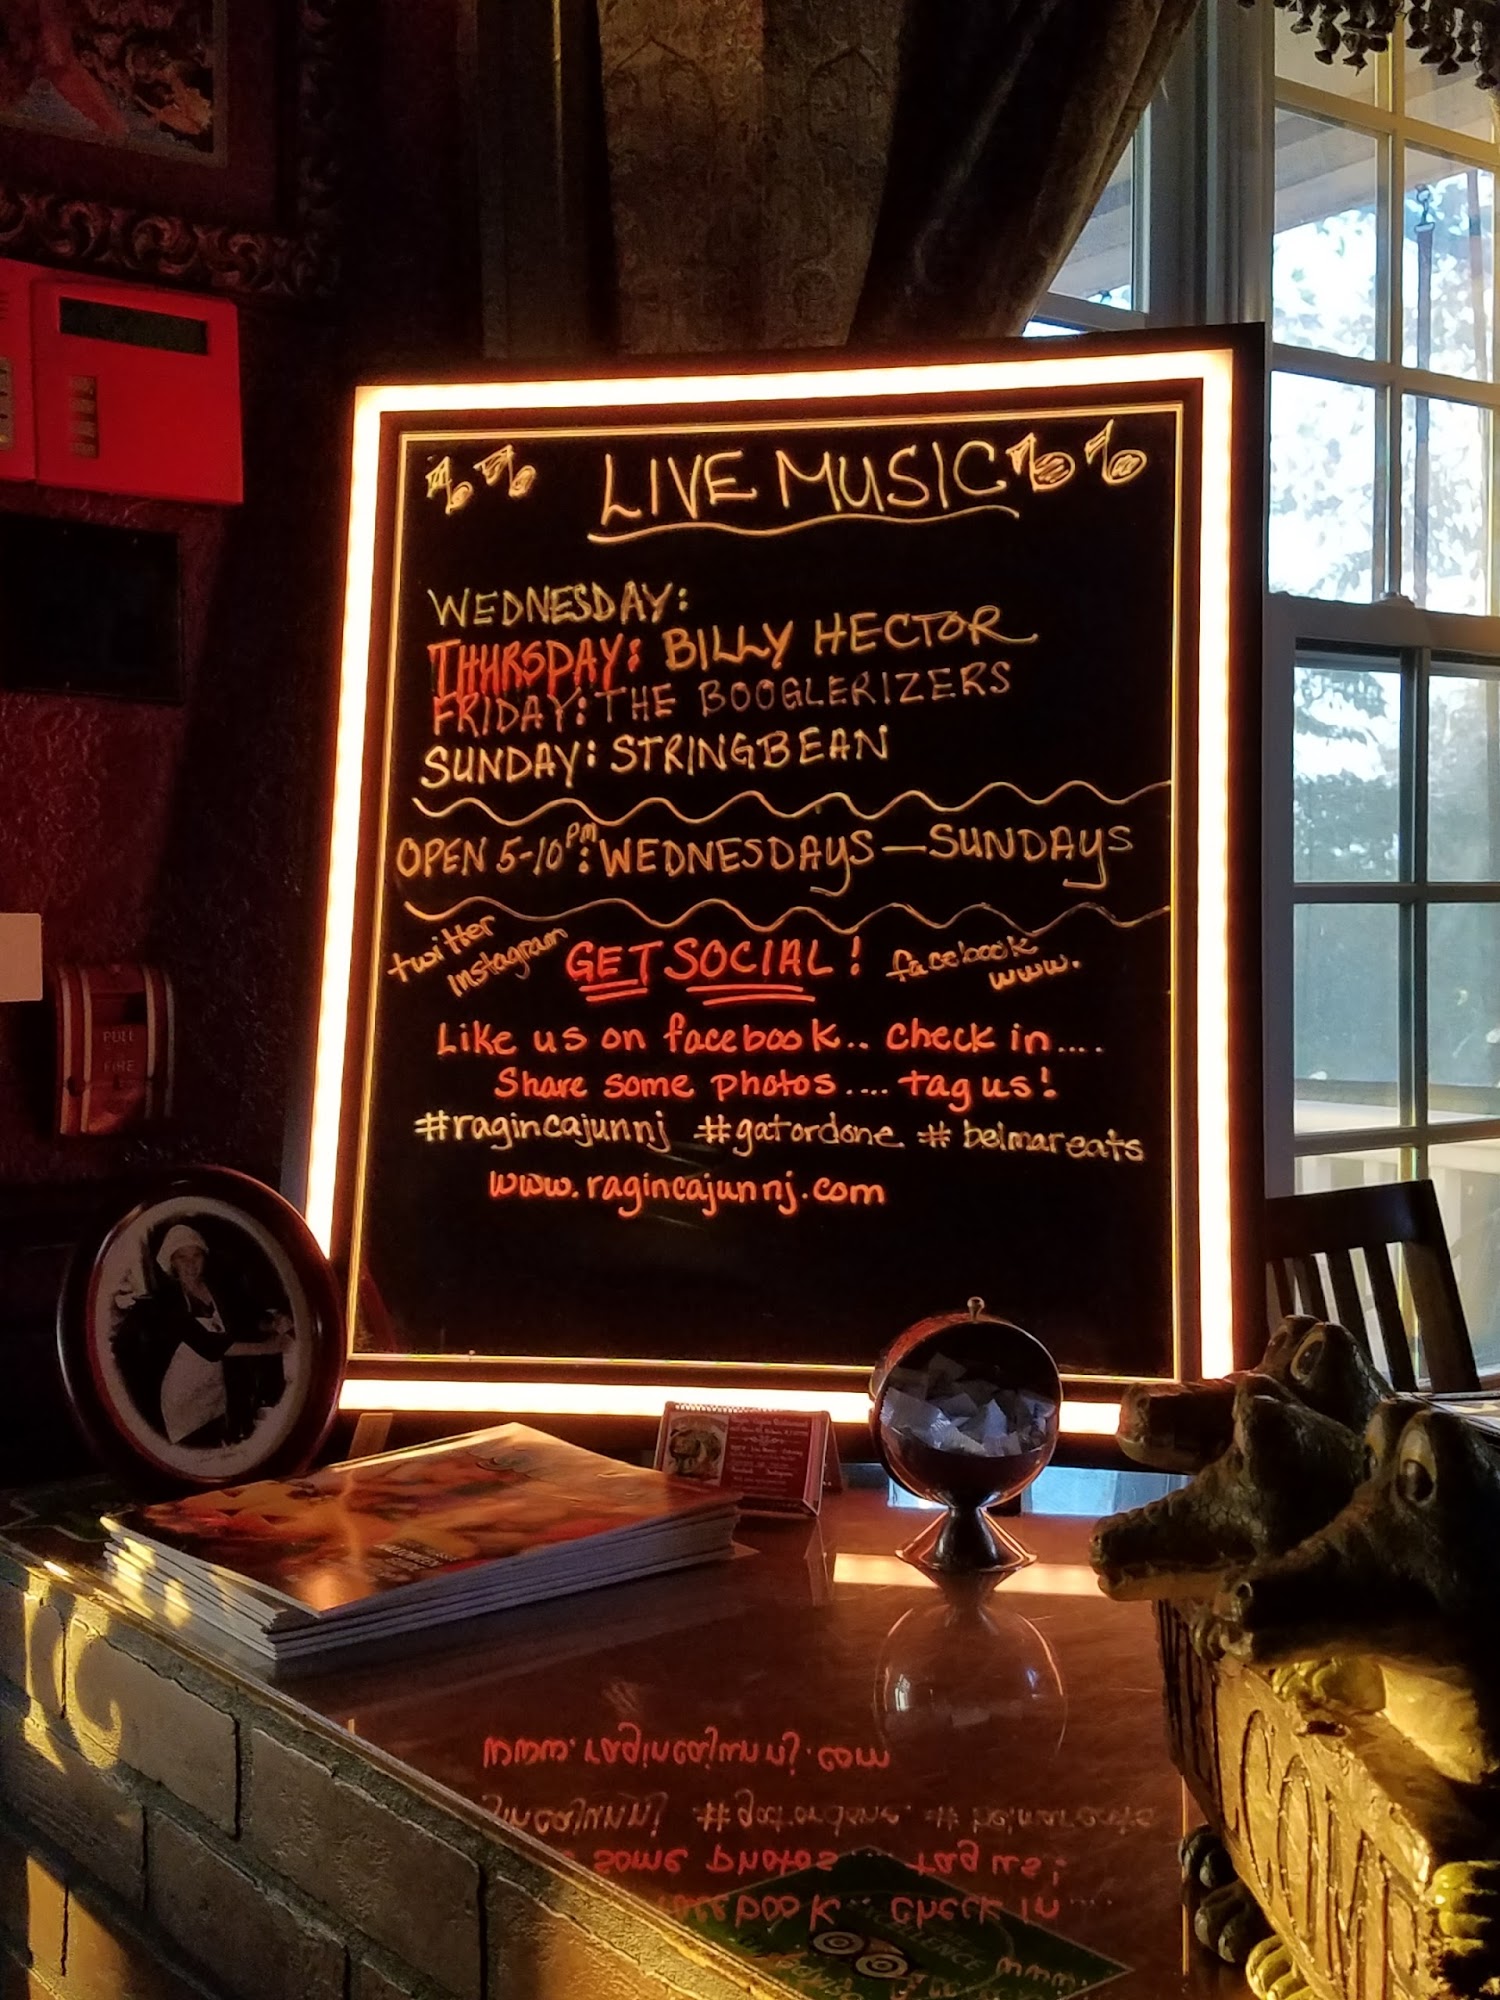 LIVE MUSIC
WEDNESDAY:
THURSDAY: BILLY HECTOR
FRIDAY: THE BOOGLERIZERS
SUNDAY: STRINGBEAN
OPEN 5-10PM: WEDNESDAYS—SUNDAYS
twitter
instagram
GET SOCIAL!
facebook
www.
Like us on facebook.. check in....
Share some photos.... tag us!
#ragincajunnj #gatordone #belmareats
www.ragincajunnj.com
PULL
FIRE